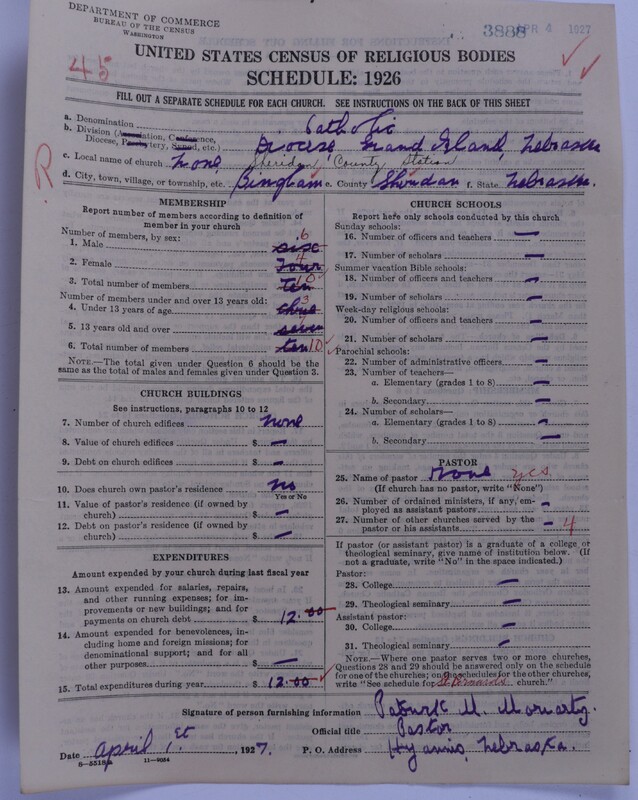 DEPARTMENT OF COMMERCE
BUREAU OF THE CENSUS
WASHINGTON
3888 APR 4 1927
45
UNITED STATES CENSUS OF RELIGIOUS BODIES
SCHEDULE: 1926
FILL OUT A SEPARATE SCHEDULE FOR EACH CHURCH. SEE INSTRUCTIONS ON THE BACK OF THIS SHEET
a. Denomination Catholic
b. Division (Association, Conference, Diocese, Presbytery, Synod, etc.) Diocese, Grand Island, Nebraska
c. Local name of church None, Sheridan County Station
R
d. City, town, village, or township, etc. Bingham e. County Sheridan f. State Nebraska.
MEMBERSHIP
Report number of members according to definition of
member in your church
Number of members, by sex:
1. Male six 6
2. Female Four 4
3. Total number of members ten 10
Number of members under and over 13 years old:
4. Under 13 years of age three 3
5. 13 years old and over seven 7
6. Total number of members ten 10
NOTE.—The total given under Question 6 should be
same as the total of males and females given under Question 3.
CHURCH BUILDINGS
See instructions, paragraphs 10 to 12
7. Number of church edifices none
8. Value of church edifices $ —
9. Debt on church edifices $ —
10. Does church own pastor's residence no
Yes or No
11. Value of pastor's residence (if owned by
church) $ —
12. Debt on pastor's residence (if owned by
church) $ —
EXPENDITURES
Amount expended by your church during last fiscal year
13. Amount expended for salaries, repairs,
and other running expenses; for im-
provements or new buildings; and for
payments on church debt $ 12.00
14. Amount expended for benevolences, in-
cluding home and foreign missions; for
denominational support; and for all
other purposes $ —
15. Total expenditures during year $ 12.00
CHURCH SCHOOLS
Report here only schools conducted by this church
Sunday schools:
16. Number of officers and teachers —
17. Number of scholars —
Summer vacation Bible schools:
18. Number of officers and teachers —
19. Number of scholars —
Week-day religious schools:
20. Number of officers and teachers —
21. Number of scholars —
Parochial schools:
22. Number of administrative officers —
23. Number of teachers—
a. Elementary (grades 1 to 8) —
b. Secondary —
24. Number of scholars—
a. Elementary (grades 1 to 8) —
b. Secondary —
PASTOR
25. Name of pastor None yes
(If church has no pastor, write "None")
26. Number of ordained ministers, if any, em-
ployed as assistant pastors —
27. Number of other churches served by the
pastor or his assistants — 4
If pastor (or assistant pastor) is a graduate of a college or
theological seminary, give name of institution below. (If
not a graduate, write "No" in the space indicated.)
Pastor:
28. College —
29. Theological seminary —
Assistant pastor:
30. College —
31. Theological seminary —
NOTE.—Where one pastor serves two or more churches,
Questions 28 and 29 should be answered only on the schedule
for one of the churches; on the schedules for the other churches,
write "See schedule for church."
Signature of person furnishing information Patrick M. Moriarty.
Official title Pastor
Date April 1st, 1927. P. O. Address Hyannis, Nebraska.
8—5518a 11—9034